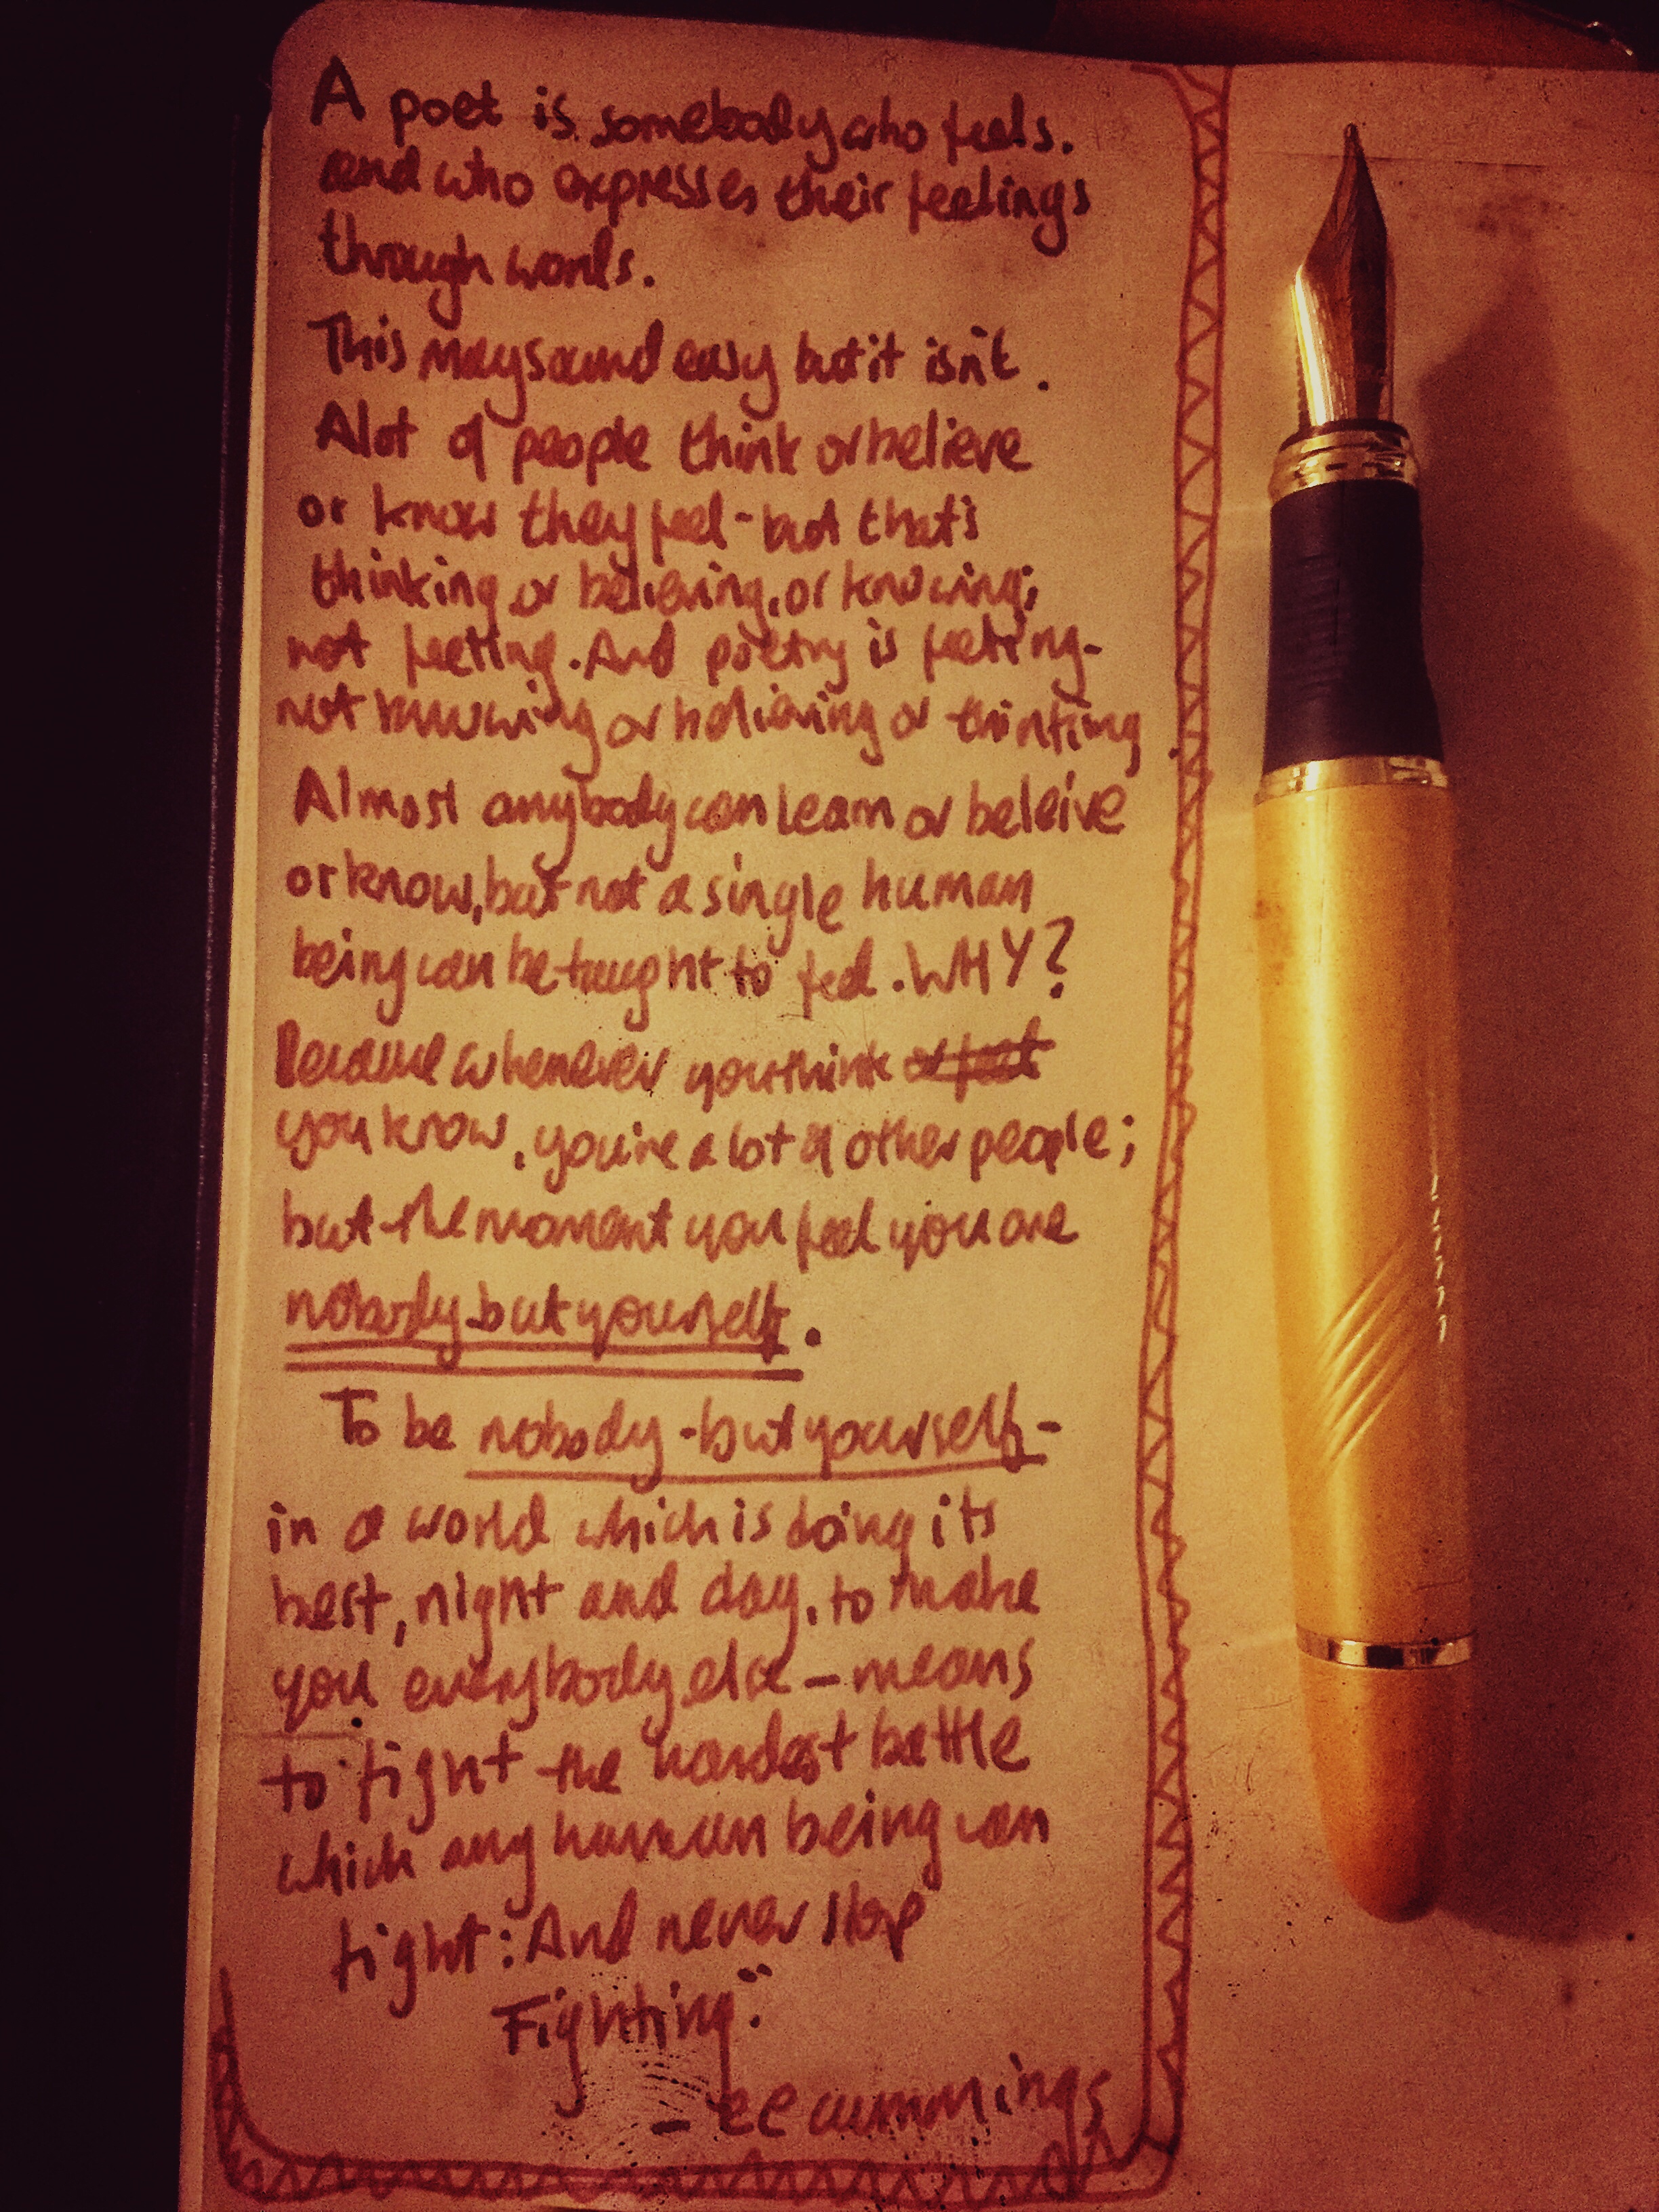 A poet is somebody who feels.
and who expresses their feelings
through words.
This may sound easy but it isn't.
A lot of people think or believe
or know they feel - but that's
thinking or believing, or knowing;
not feeling. And poetry is feeling-
not knowing or believing or thinking.
Almost anybody can learn or beleive
or know, but not a single human
being can be taught to feel. WHY?
Because whenever you think or feel
you know, you're a lot of other people;
but the moment you feel you are
nobody-but yourself.
To be nobody-but yourself-
in a world which is doing its
best, night and day, to make
you everybody else - means
to fight the hardest battle
which any human being can
fight: And never stop
Fighting."
- ee cummings